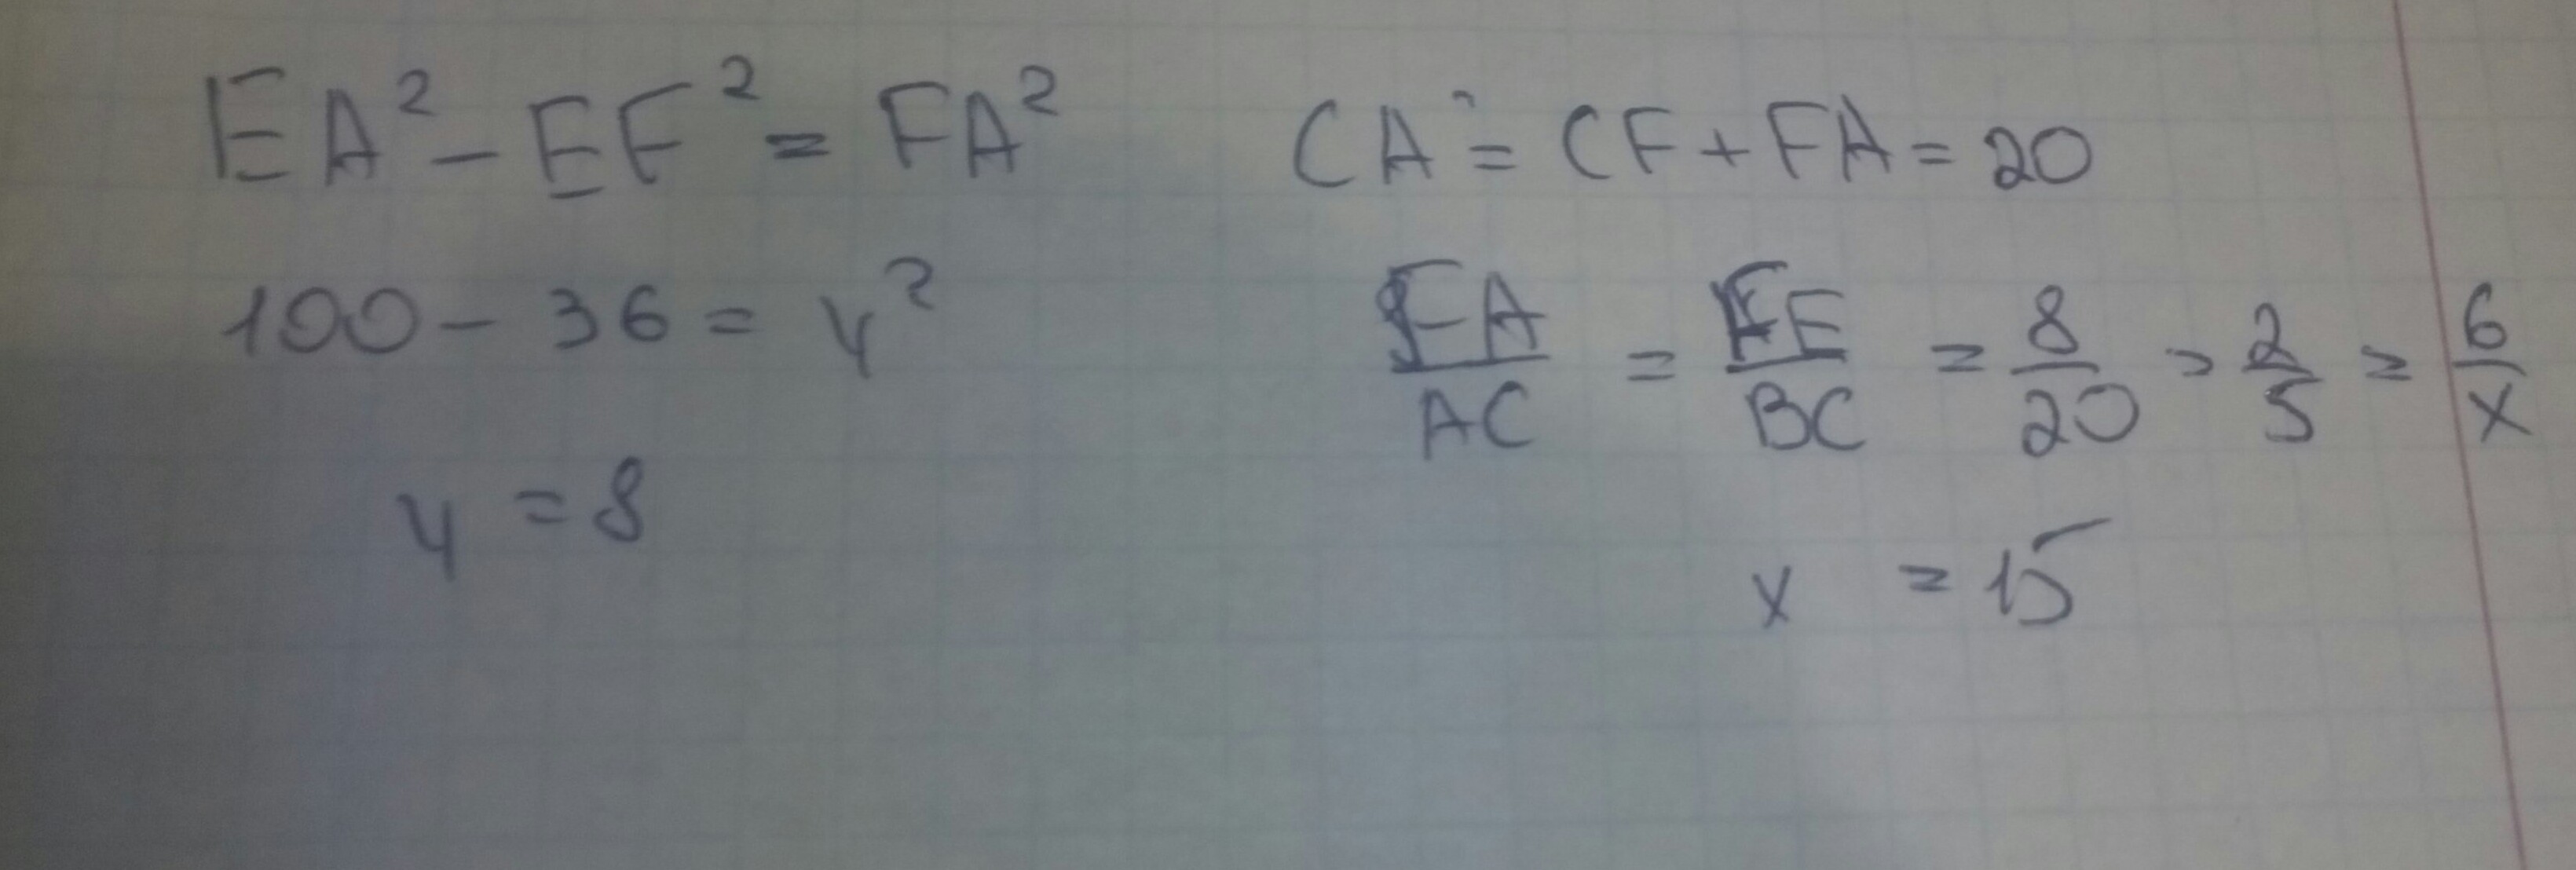 EA² - EF² = FA²
100 - 36 = y²
y = 8
CA = CF + FA = 20
FA/AC = FE/BC = 8/20 = 2/5 = 6/x
x = 15